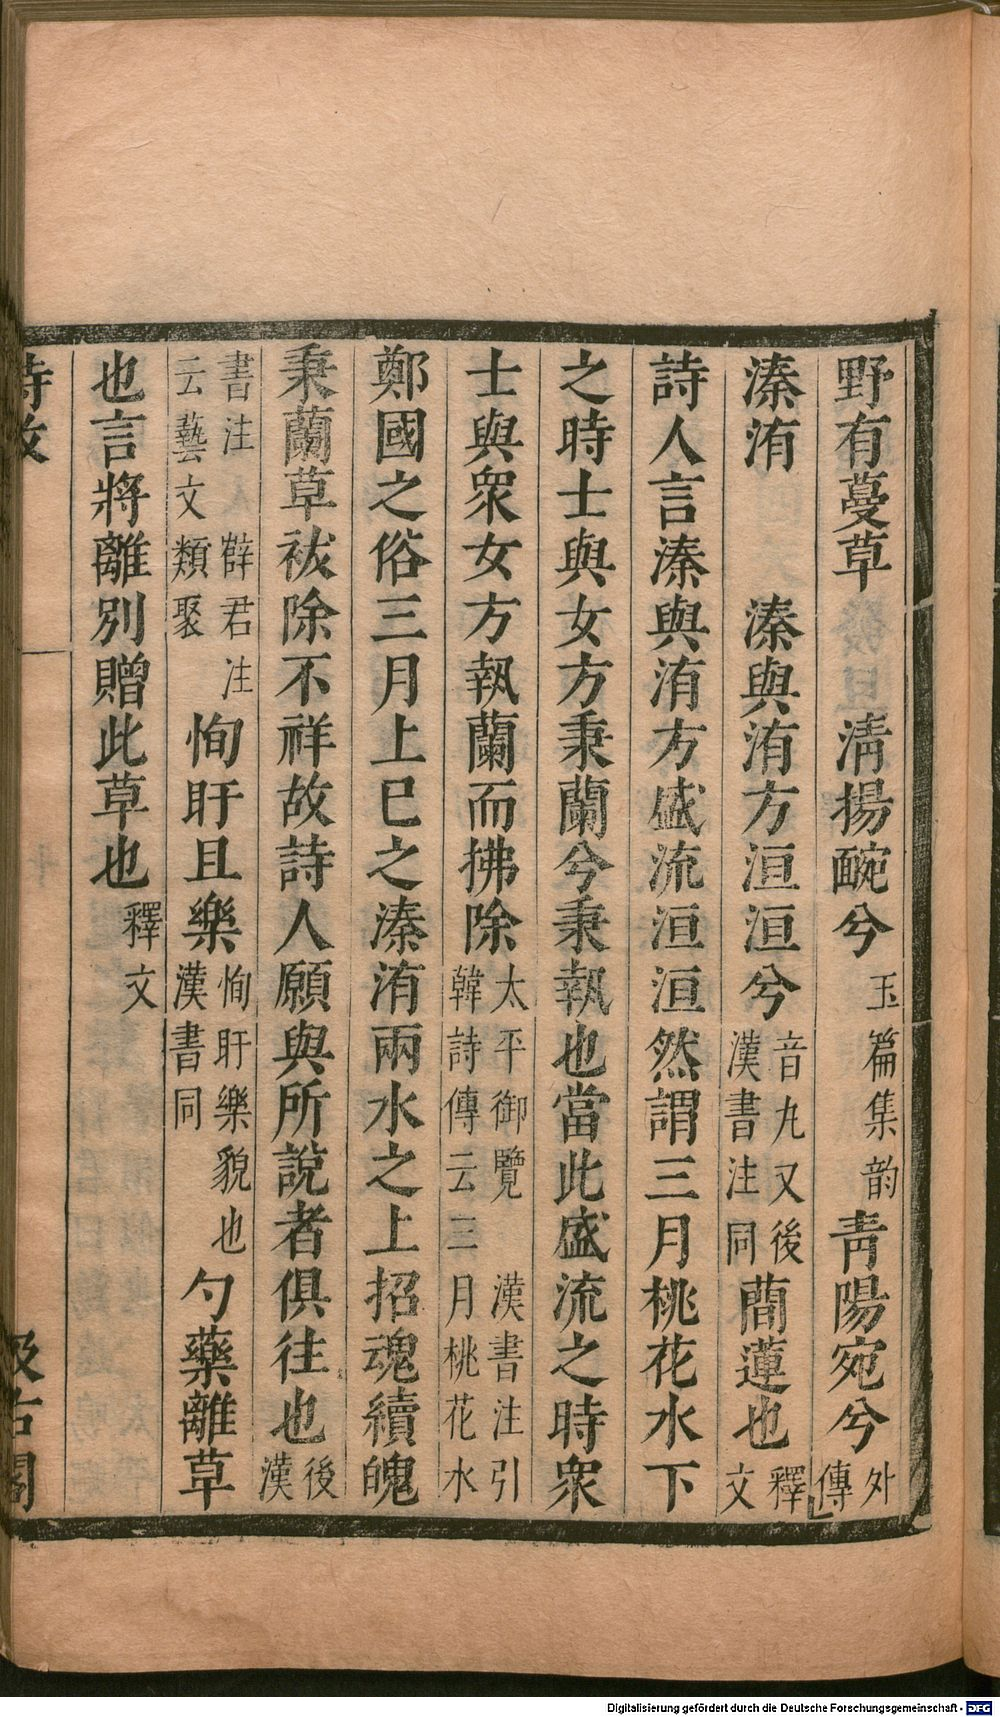 野有蔓草 清揚䩊兮玉篇集韵靑陽宛兮外傳
溱洧 溱與洧方洹洹兮音丸又後漢書注同蕑蓮也釋文
詩人言溱與洧方盛流洹洹然謂三月桃花水下
之時士與女方秉蘭兮秉執也當此盛流之時衆
士與衆女方執蘭而拂除太平御覽 漢書注引韓詩傳云三月桃花水
鄭國之俗三月上巳之溱洧兩水之上招魂續魄
秉蘭草祓除不祥故詩人願與所說者俱往也後漢
書注 薛君注云藝文類聚 恂盱且樂恂盱樂貌也漢書同 勺藥離草
也言將離別贈此草也釋文
詩攷 汲古閣
Digitalisierung gefördert durch die Deutsche Forschungsgemeinschaft - DFG